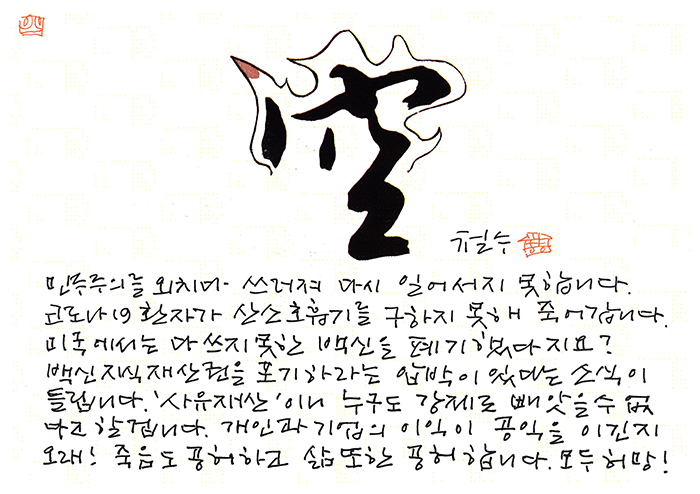 空
철수
민주주의를 외치며 쓰러져 다시 일어서지 못합니다.
코로나19 환자가 산소호흡기를 구하지 못해 죽어갑니다.
미국에서는 다 쓰지못한 백신을 폐기했다지요?
백신지식재산권을 포기하라는 압박이 있다는 소식이
들립니다. '사유재산'이니 누구도 강제로 빼앗을 수 없
다고 할 겁니다. 개인과 기업의 이익이 공익을 이긴지
오래! 죽음도 공허하고 삶 또한 공허합니다. 모두 허망!